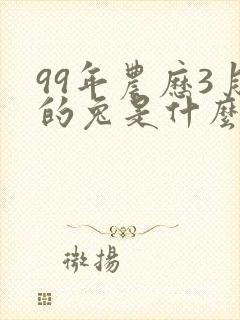 99年農歷3月
的兔是什麼
微揚